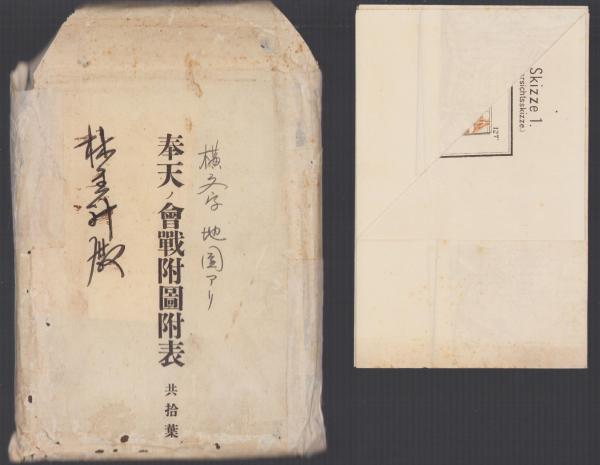 横文字 地図アリ
奉天ノ會戰附圖附表 共拾葉
殿
Skizze 1.
rsichtsskizze.)
127°